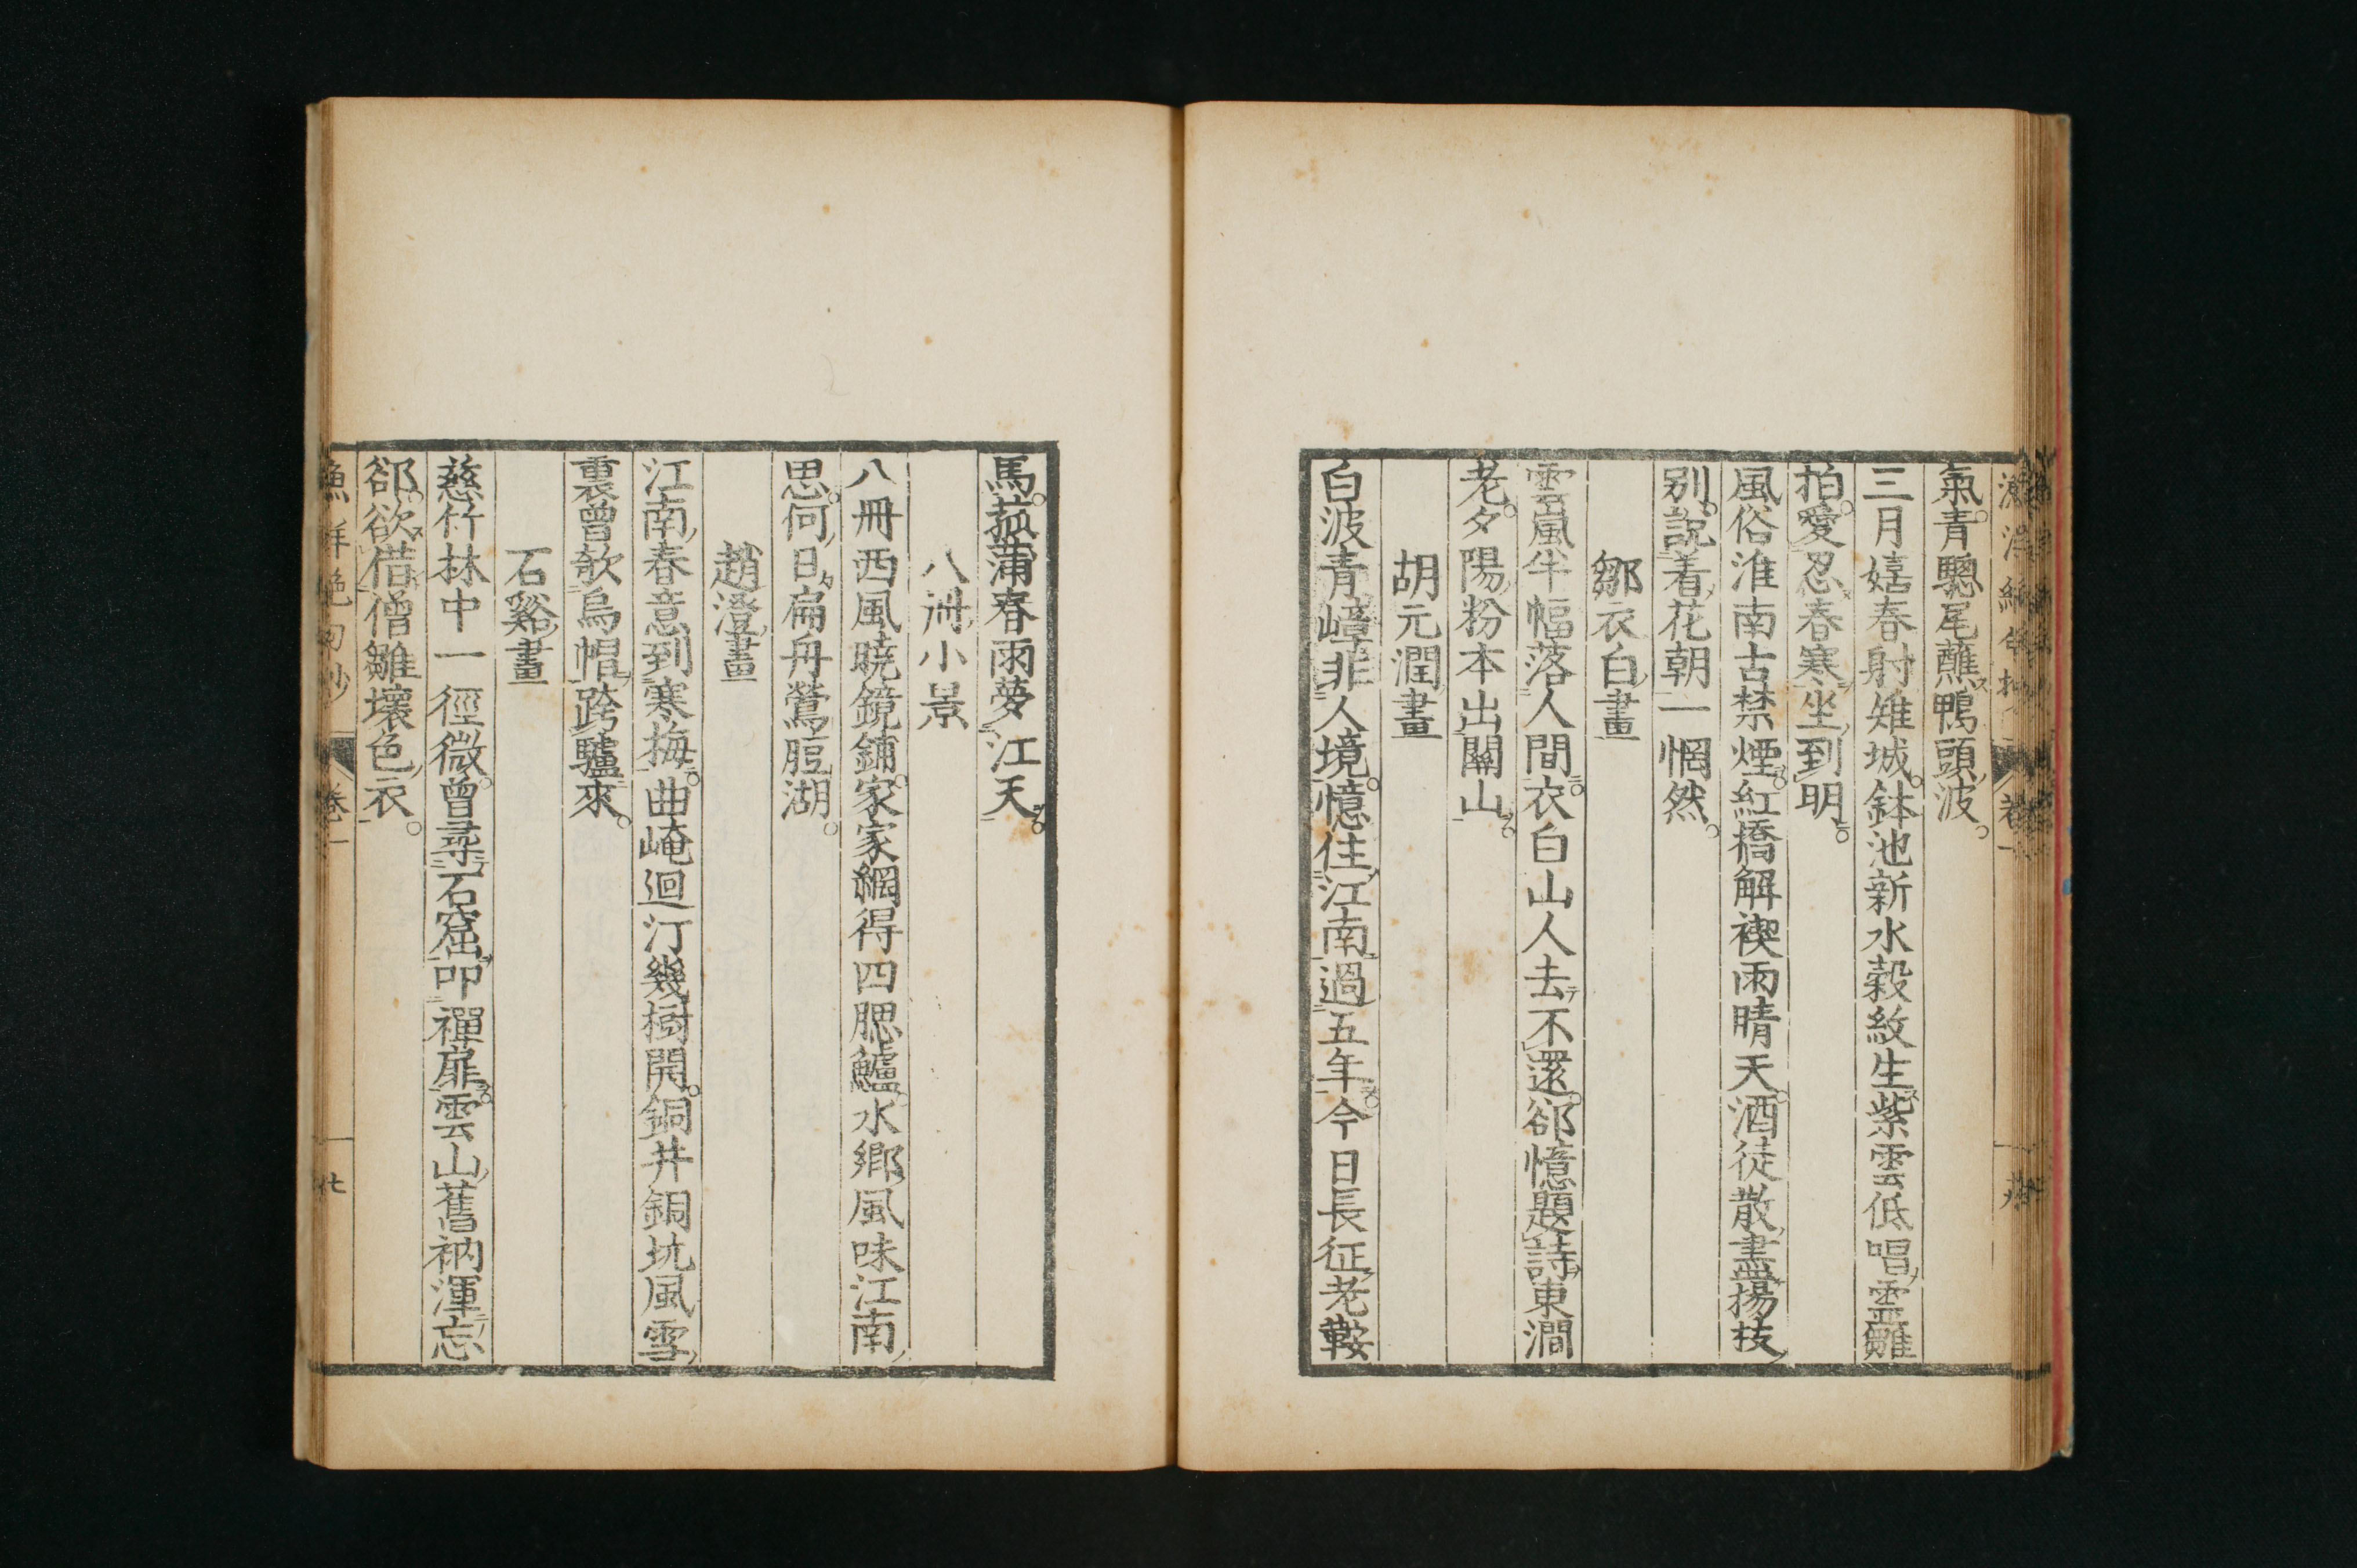 氣。青驄尾蘸鴨頭波。
三月嬉春射雉城。鉢池新水縠紋生。紫雲低唱靈雛
拍。愛忍春寒坐到明。
風俗淮南古禁煙。紅橋解禊雨晴天。酒徒散盡揚枝
別。說着花朝一惘然。
鄒衣白畫
雲風半幅落人間。衣白山人去不還。郤憶題詩東澗
老。夕陽粉本出關山。
胡元潤畫
白波青嶂非人境。憶住江南過五年。今日長征老鞍
馬。菰蒲春雨夢江天。
八冊小景
八冊西風曉鏡鋪。家家網得四腮鱸。水鄉風味江南
思。何日扁舟鶯脰湖。
趙澄畫
江南春意到寒梅。曲崦迴汀幾樹開。銅井銅坑風雪
裏。曾欹烏帽跨驢來。
石谿畫
慈竹林中一徑微。曾尋石窟叩禪扉。雲山舊衲渾忘
郤。欲借僧雛壞色衣。
漁洋絶句抄 卷一 七